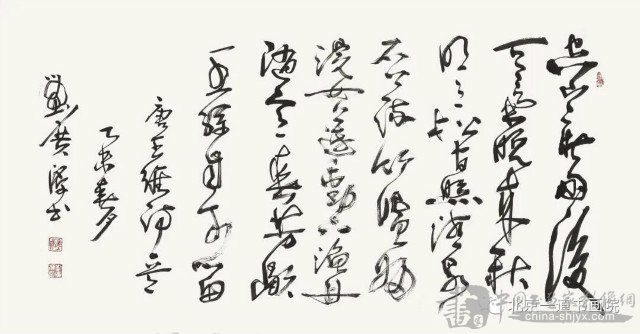 空山新雨後
天氣晚來秋
明月松間照清泉
石上流竹喧歸
浣女蓮動下漁舟
隨意春芳歇
王孫自可留
唐王維詩意
乙未春月
書
www.china-shjyx.com